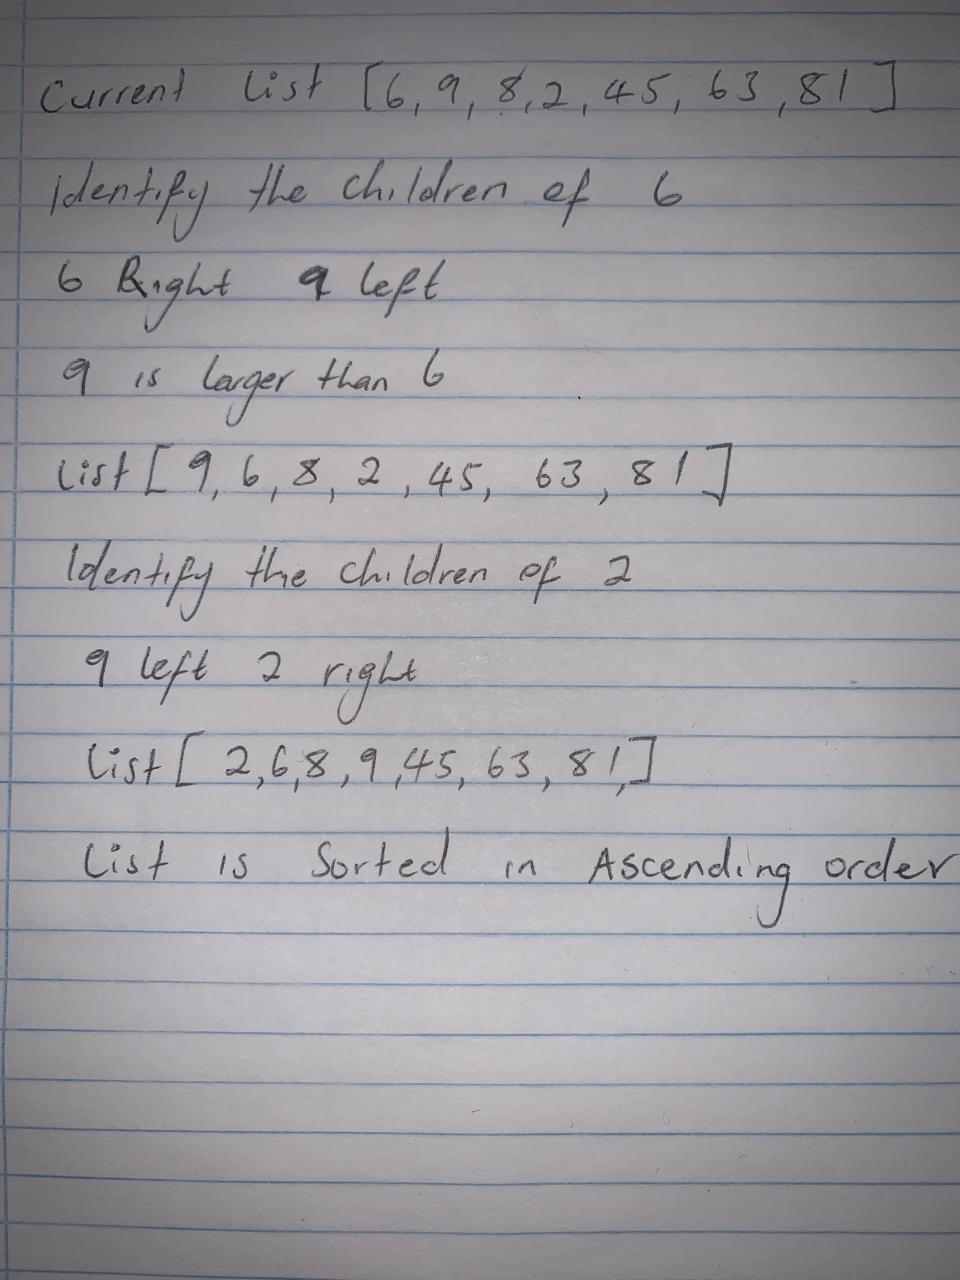 Current list [6, 9, 8, 2, 45, 63, 81]
Identify the children of 6
6 Right 9 left
9 is larger than 6
list [9, 6, 8, 2, 45, 63, 81]
Identify the children of 2
9 left 2 right
list [2, 6, 8, 9, 45, 63, 81,]
List is Sorted in Ascending order